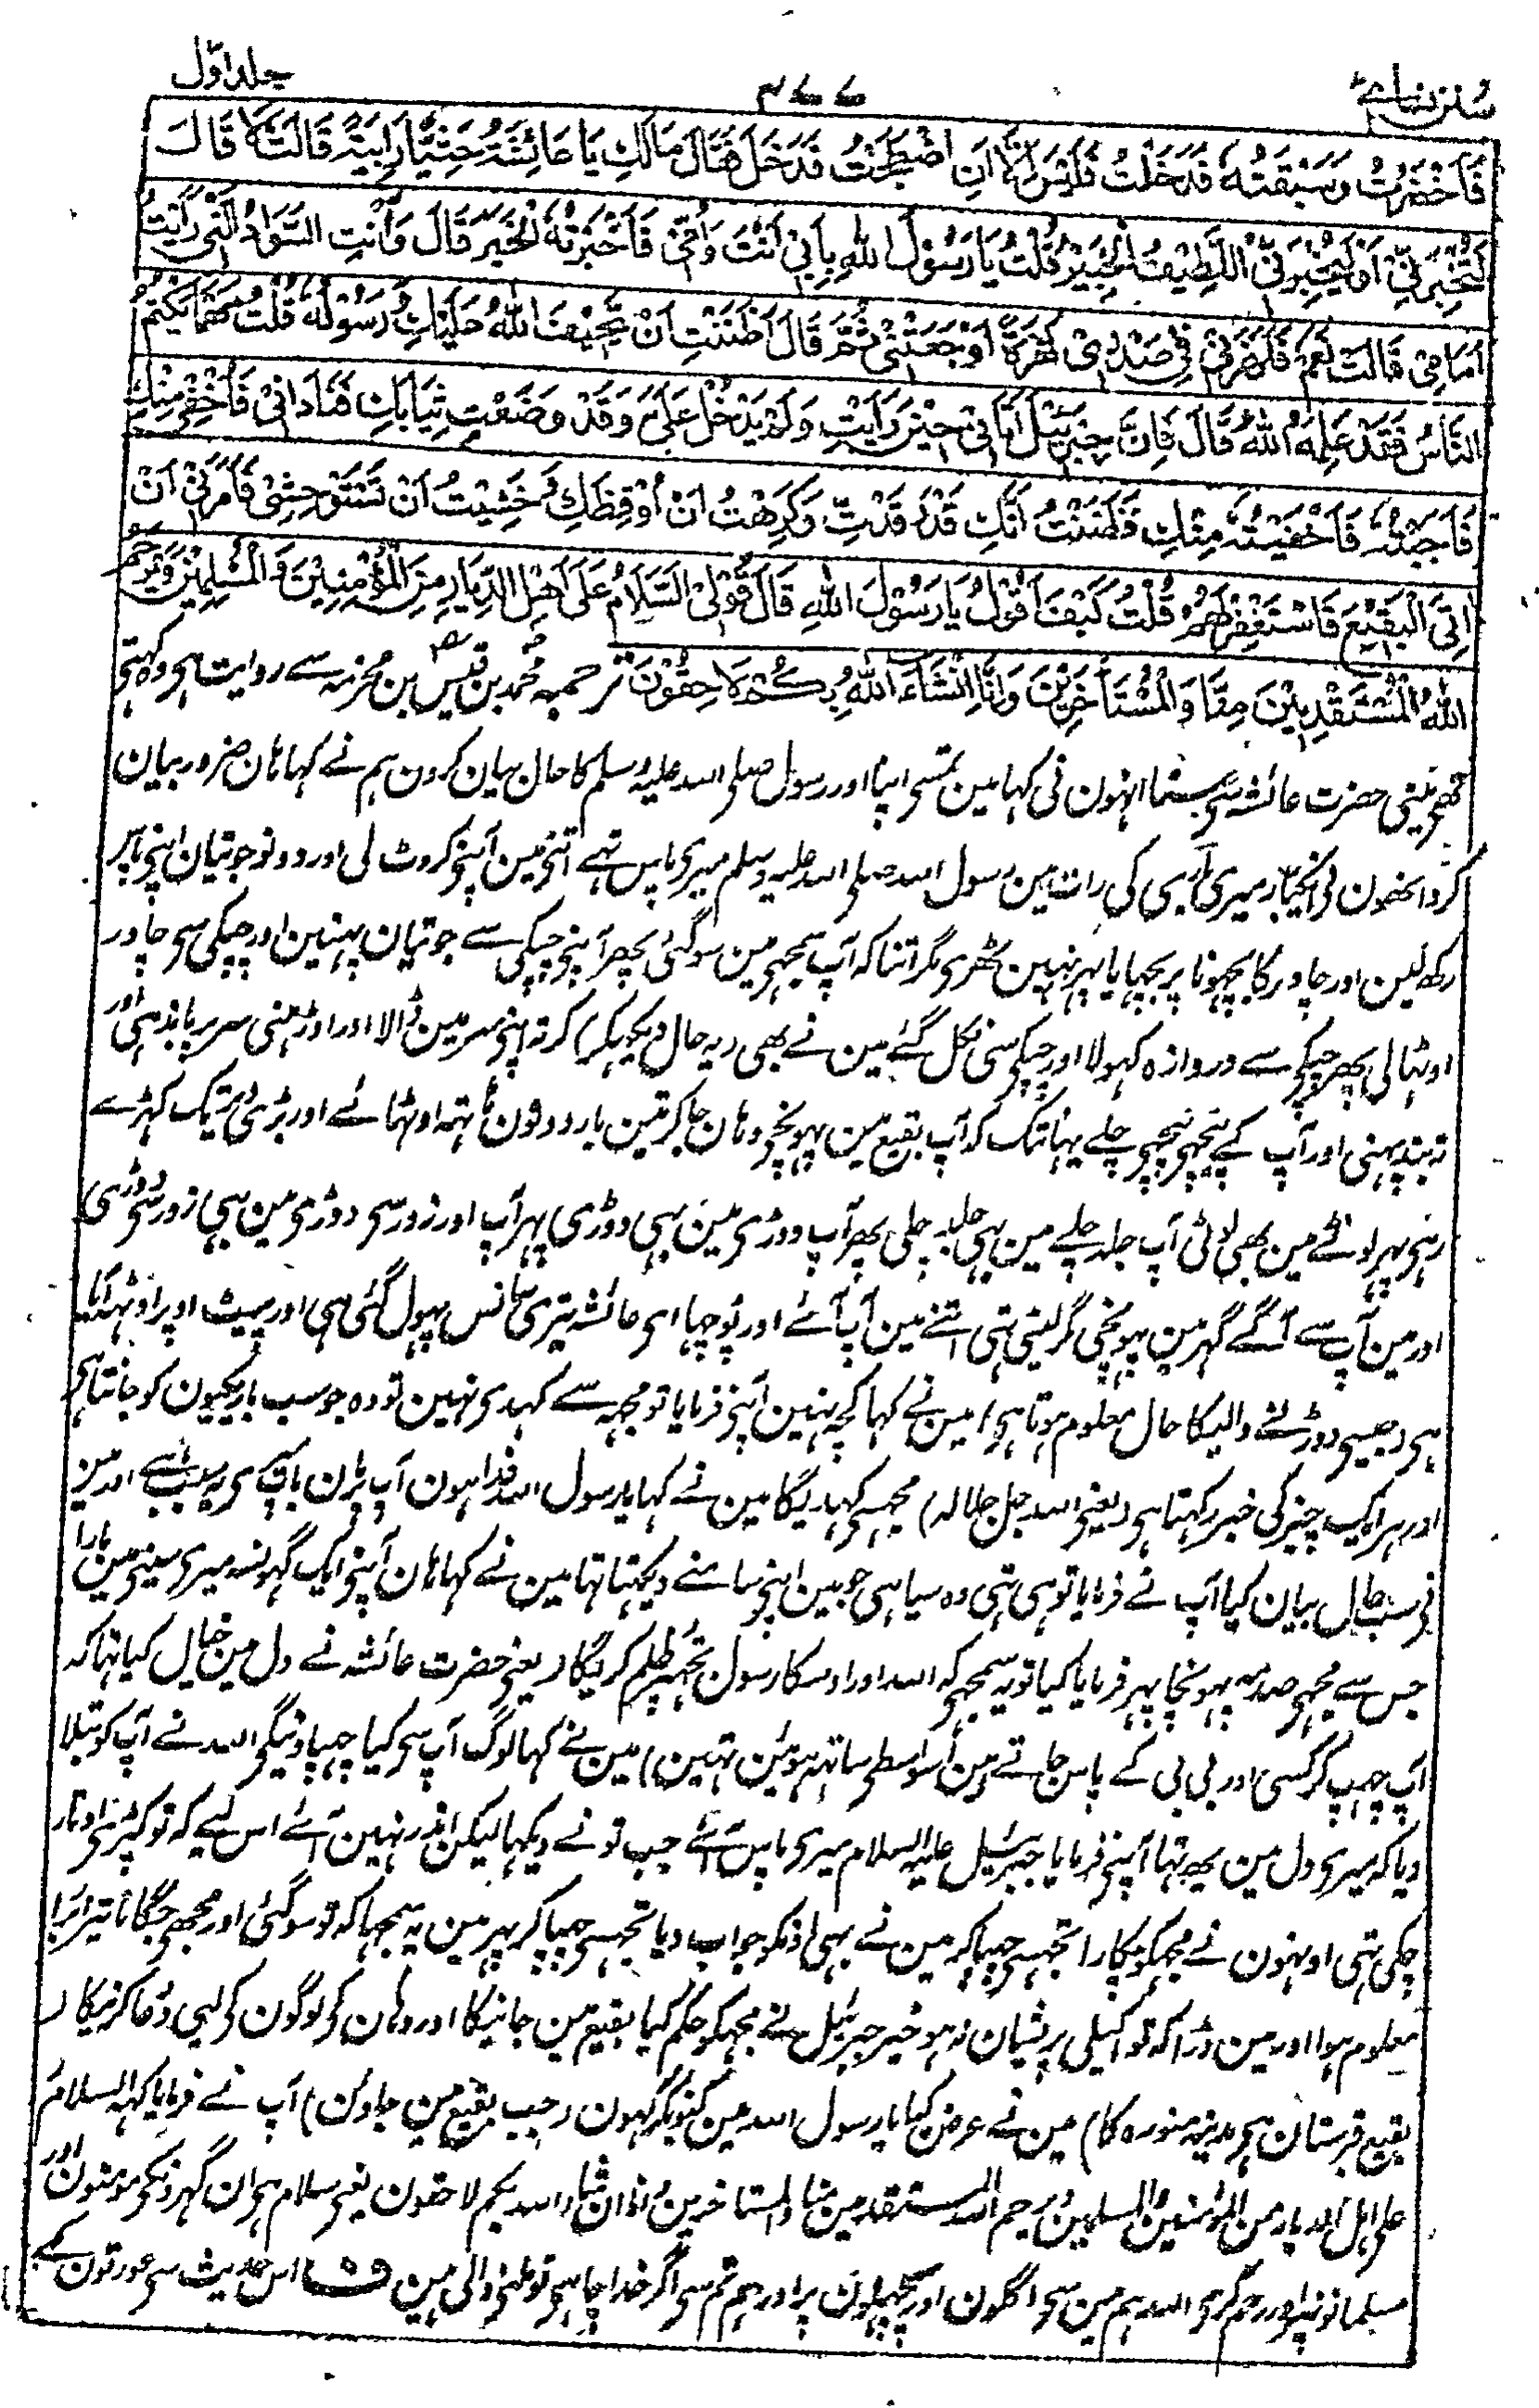 سنن نسائی ۶۷۷ جلد اوّل
فَاَحْضَرْتُ وَسَبَقْتُهٗ فَدَخَلْتُ فَلَيْسَ اِلَّا اَنِ اضْطَجَعْتُ فَدَخَلَ فَقَالَ مَالَكِ يَا عَائِشَةُ حَشْيًا رَابِيَةً قَالَتْ لَا قَالَ
لَتُخْبِرَنِّيْ اَوْ لَيُخْبِرَنِّي اللَّطِيْفُ الْخَبِيْرُ قُلْتُ يَا رَسُوْلَ اللهِ بِاَبِيْ اَنْتَ وَاُمِّيْ فَاَخْبَرْتُهُ الْخَبَرَ قَالَ وَاَنْتِ السَّوَادُ الَّذِيْ رَاَيْتُ
اَمَامِيْ قَالَتْ نَعَمْ فَلَهَزَنِيْ فِيْ صَدْرِيْ لَهْزَةً اَوْجَعَتْنِيْ ثُمَّ قَالَ اَظَنَنْتِ اَنْ يَّحِيْفَ اللهُ عَلَيْكِ وَرَسُوْلُهٗ قُلْتُ مَهْمَا يَكْتُمُ
النَّاسُ فَقَدْ عَلِمَهُ اللهُ قَالَ فَاِنَّ جِبْرَئِيْلَ اَتَانِيْ حِيْنَ رَاَيْتِ وَلَمْ يَدْخُلْ عَلَيَّ وَقَدْ وَضَعْتِ ثِيَابَكِ فَنَادَانِيْ فَاَخْفٰى مِنْكِ
فَاَجَبْتُهٗ فَاَخْفَيْتُهٗ مِنْكِ فَظَنَنْتُ اَنَّكِ قَدْ رَقَدْتِّ وَكَرِهْتُ اَنْ اُوْقِظَكِ وَخَشِيْتُ اَنْ تَسْتَوْحِشِيْ فَاَمَرَنِيْ اَنْ
اٰتِيَ الْبَقِيْعَ فَاَسْتَغْفِرَ لَهُمْ قُلْتُ كَيْفَ اَقُوْلُ يَا رَسُوْلَ اللهِ قَالَ قُوْلِي السَّلَامُ عَلٰى اَهْلِ الدِّيَارِ مِنَ الْمُؤْمِنِيْنَ وَالْمُسْلِمِيْنَ وَيَرْحَمُ
اللهُ الْمُسْتَقْدِمِيْنَ مِنَّا وَالْمُسْتَاْخِرِيْنَ وَاِنَّا اِنْشَاءَ اللهُ بِكُمْ لَاحِقُوْنَ ترجمہ محمد بن قیس بن مخرمہ سے روایت ہی وہ کہتی
مجھی مینی حضرت عائشہ سی سنا انہون نی کہا مین تمسی اپنا اور رسول صلی اللہ علیہ وسلم کا حال بیان کرون ہم نے کہا ہان ضرور بیان
کرو انھون نی کہا ایکبار میری باری کی رات مین رسول اللہ صلی اللہ علیہ وسلم میری پاس تہے اتنی مین آپنی کروٹ لی اور دونو جوتیان اپنی پاپر
رکھ لین اور چادر کا بچھونا پر بچہایا پہر نہین ٹھری مگر اتنا کہ آپ سمجھی مین سو گئی پھر آپنی چپکی سے جوتیان پہنین اور چپکی سی چادر
اوٹہالی پھر چپکی سے دروازہ کہولا اور چپکی سی نکل گئے مین نے بھی (یہ حال دیکھکر) کرتہ اپنی سر مین ڈالا اور اوڑہنی سر پر باندہی اور
تہبند پہنی اور آپ کے پیچھی پیچھی چلے یہانتک کہ آپ بقیع مین پہونچی وہان جا کر تین بار دونون ہاتہہ اوٹہائے اور بڑی دیر تک کہڑے
رہی پہر لوٹے مین بھی لوٹی آپ جلد چلے مین بہی جلد چلی پھر آپ دوڑی مین بہی دوڑی پہر آپ اور زور سی دوڑی مین بہی زور سی دوڑی
اور مین آپ سے آگے گہر مین پہونچی مگر لیٹی تہی اتنے مین آپ آئے اور پوچہا ای عائشہ تیری سانس پہول گئی ہی اور پیٹ اوپر اوٹہہ آیا
ہی (جیسی دوڑنے والیکا حال معلوم ہوتا ہی) مین نے کہا کچہ نہین آپنی فرمایا تو مجہہ سے کہدی نہین تو وہ جو سب باریکیون کو جانتا ہی
اور ہر ایک چیز کی خبر رکہتا ہی (یعنی اللہ جل جلالہ) مجہسی کہدیگا مین نے کہا یا رسول اللہ فدا ہون آپ پر مان باپ میری یہ سبب ہے اور مین
نی سب حال بیان کیا آپ نے فرمایا تو ہی تہی وہ سیاہی جو مین اپنی سامنے دیکہتا تہا مین نے کہا ہان آپنی ایک گہونسہ میری سینی مین مارا
جس سے مجہی صدمہ پہونچا پہر فرمایا کیا تو یہ سمجہی کہ اللہ اور اوسکا رسول تجہپر ظلم کریگا (یعنی حضرت عائشہ نے دل مین خیال کیا تہا کہ
آپ چہپ کر کسی اور بی بی کے پاس جاتے ہین اسواسطی ساتہہ ہوئین تہین) مین نے کہا لوگ آپ سی کیا چہپاوینگی اللہ نے آپ کو بتلا
دیا کہ میری دل مین یہ تہا آپنی فرمایا جبرئیل علیہ السلام میری پاس آئے جب تو نے دیکہا لیکن اندر نہین آئے اس لیے کہ تو کپڑی اوتار
چکی تہی اونہون نے مجہکو پکارا تجہسی چہپا کر مین نے بہی اونکو جواب دیا تجہسی چہپا کر پہر مین یہ سمجہا کہ تو سو گئی اور مجھی جگانا تیرا برا
معلوم ہوا اور مین ڈرا کہ تو اکیلی پریشان نہ ہو خیر جبرئیل نے مجہکو حکم کیا بقیع مین جانیکا اور وہان کی لوگون کی لیی دعا کرنیکا (
بقیع قبرستان ہی مدینہ منورہ کا) مین نے عرض کیا یا رسول اللہ مین کیونکر کہون (جب بقیع مین جاون) آپ نے فرمایا کہہ السلام
علی اہل الدیار من المؤمنین والمسلمین یرحم اللہ المستقدمین منا والمستاخرین وانا ان شاء اللہ بکم لاحقون یعنی سلام ہی ان گہر ونکی مومنون اور
مسلمانونپر اور رحم کری اللہ ہم مین سی اگلون اور پچہلون پر اور ہم تم سی اگر خدا چاہی تو ملنی والی ہین ف اس حدیث سی عورتون کے